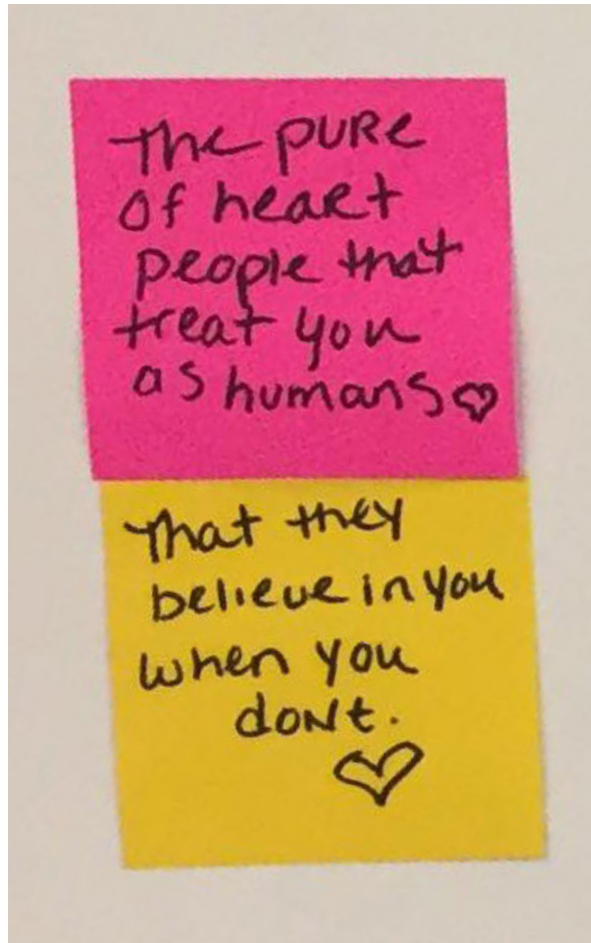 The pure
of heart
people that
treat you
as humans♡
That they
believe in you
when you
dont.
♡